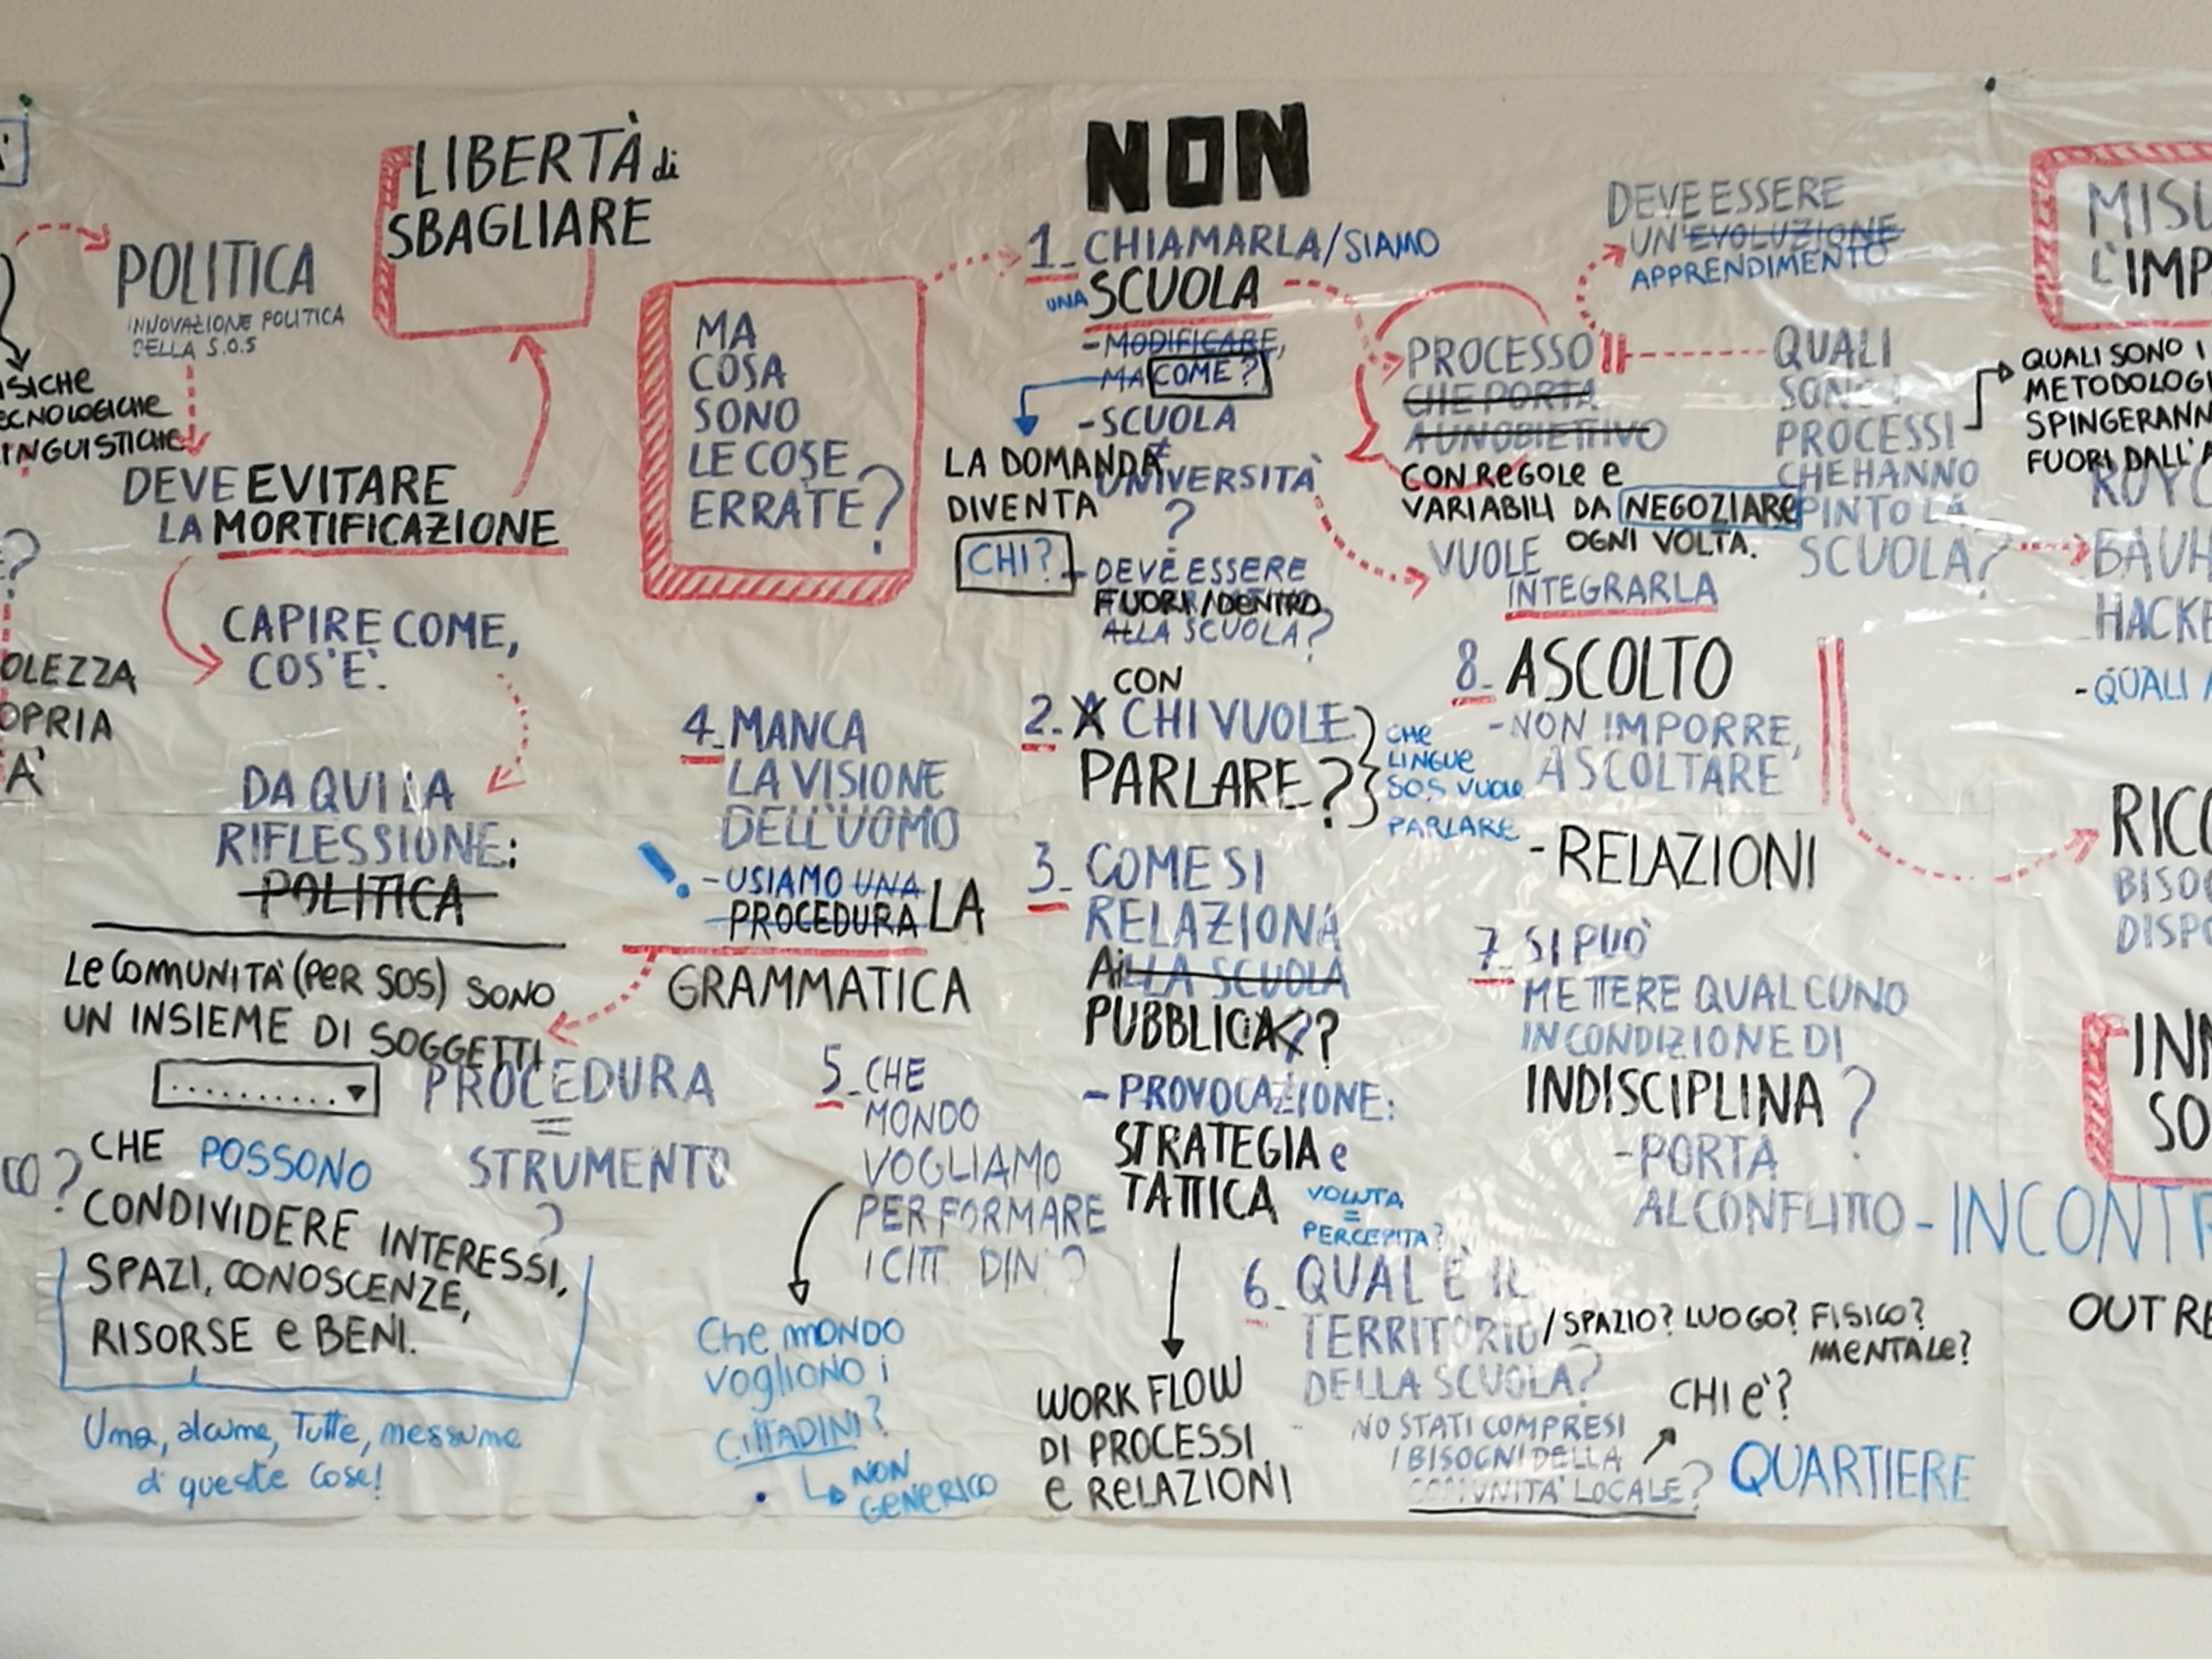 POLITICA
INNOVAZIONE POLITICA
DELLA S.O.S
ISICHE
ECNOLOGICHE
INGUISTICHE
LIBERTÀ di
SBAGLIARE
DEVE EVITARE
LA MORTIFICAZIONE
CAPIRE COME,
COS'È.
OLEZZA
OPRIA
A'
DA QUI LA
RIFLESSIONE:
POLITICA
Le COMUNITÀ (PER SOS) SONO
UN INSIEME DI SOGGETTI
..........
CHE POSSONO
CONDIVIDERE INTERESSI,
SPAZI, CONOSCENZE,
RISORSE e BENI.
Una, alcune, Tutte, nessuna
di queste cose!
CO?
PROCEDURA
=
STRUMENTO
?
MA
COSA
SONO
LE COSE
ERRATE?
4_MANCA
LA VISIONE
DELL'UOMO
! -USIAMO UNA
PROCEDURA LA
GRAMMATICA
5_CHE
MONDO
VOGLIAMO
PER FORMARE
I CITT DIN ?
Che MONDO
vogliono i
CITTADINI?
NON
GENERICO
NON
1_CHIAMARLA/SIAMO
UNA SCUOLA
-MODIFICARE,
MA COME?
-SCUOLA
≠
UNIVERSITÀ
?
LA DOMANDA
DIVENTA
CHI?
-DEVE ESSERE
FUORI/DENTRO
ALLA SCUOLA?
CON
2_A CHI VUOLE
PARLARE?
CHE
LINGUE
SOS VUOLE
PARLARE
3_COME SI
RELAZIONA
Ai LLA SCUOLA
PUBBLICA??
-PROVOCAZIONE:
STRATEGIA e
TATTICA
VOLUTA
=
PERCEPITA?
WORK FLOW
DI PROCESSI
e RELAZIONI
6_QUAL È IL
TERRITORIO/SPAZIO? LUOGO? FISICO?
MENTALE?
DELLA SCUOLA?
CHI è?
NO STATI COMPRESI
I BISOGNI DELLA
COMUNITA' LOCALE?
QUARTIERE
DEVE ESSERE
UN'EVOLUZIONE
APPRENDIMENTO
PROCESSO
CHE PORTA
A UN OBIETTIVO
CON REGOLE e
VARIABILI DA NEGOZIARE
OGNI VOLTA.
VUOLE
INTEGRARLA
QUALI
SONO I
PROCESSI
CHE HANNO
SPINTO LA
SCUOLA?
8_ASCOLTO
-NON IMPORRE,
ASCOLTARE
-RELAZIONI
7_SI PUÒ
METTERE QUALCUNO
IN CONDIZIONE DI
INDISCIPLINA?
-PORTA
AL CONFLITTO - INCONTR
MISU
L'IMP
QUALI SONO I
METODOLOGI
SPINGERANN
FUORI DALL'A
BAUH
HACKE
-QUALI
RICO
BISO
DISPO
INN
SO
OUT RE